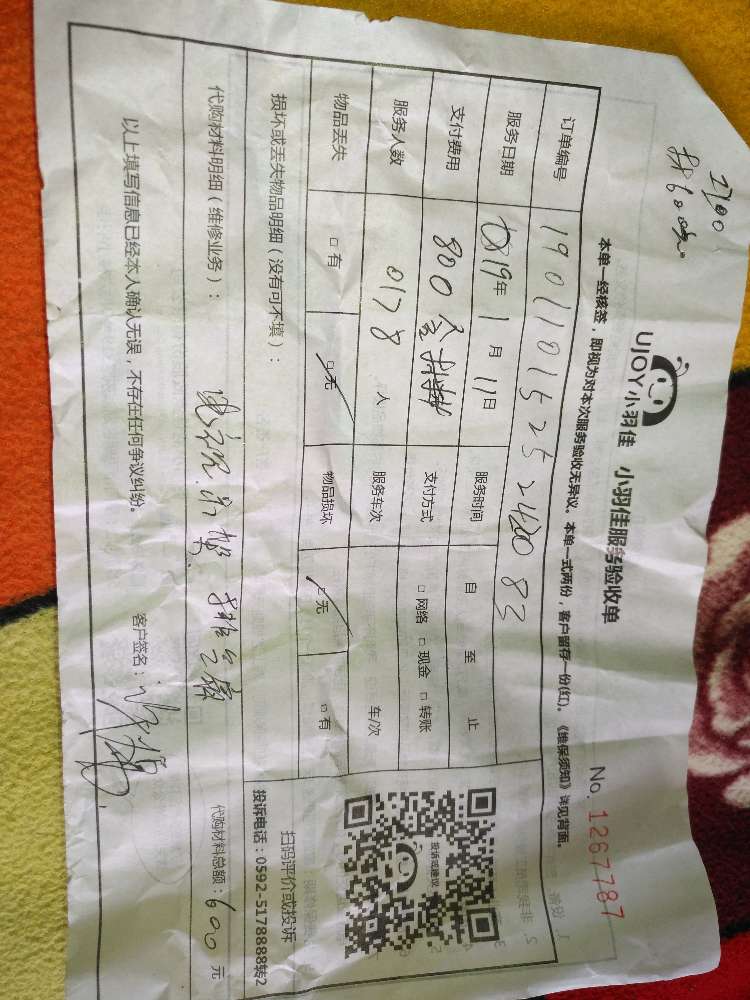 UJOY小羽佳 小羽佳服务验收单
No. 1267787
本单一经核签，即视为对本次服务验收无异议。本单一式两份，客户留存一份(红)。《维保须知》详见背面。
订单编号 19011015252420 83
服务日期 2019年 1月 11日 服务时间 自 至 止
支付费用 800 支付方式 □网络 □现金 □转账
服务人数 0178 人 服务车次 车/次
物品丢失 □有 □无 物品损坏 □无 □有
损坏或丢失物品明细（没有可不填）：
投诉或建议
扫码评价或投诉
投诉电话：0592-5178888转2
代购材料明细（维修业务）：
代购材料总额：600 元
以上填写信息已经本人确认无误，不存在任何争议纠纷。 客户签名：